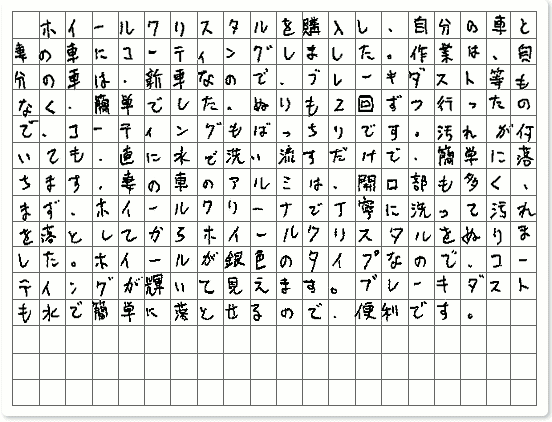 ホイールクリスタルを購入し、自分の車と
妻の車にコーティングしました。作業は、自
分の車は、新車なので、ブレーキダスト等も
なく、簡単でした。ぬりも2回ずつ行ったの
で、コーティングもばっちりです。汚れが何
いても、直に水で洗い流すだけで、簡単に落
ちます。妻の車のアルミは、開口部も多く、
まず、ホイールクリーナで丁寧に洗って汚れ
を落としてからホイールクリスタルをぬりま
した。ホイールが銀色のタイプなので、コー
ティングが輝いて見えます。ブレーキダスト
も水で簡単に落とせるので、便利です。